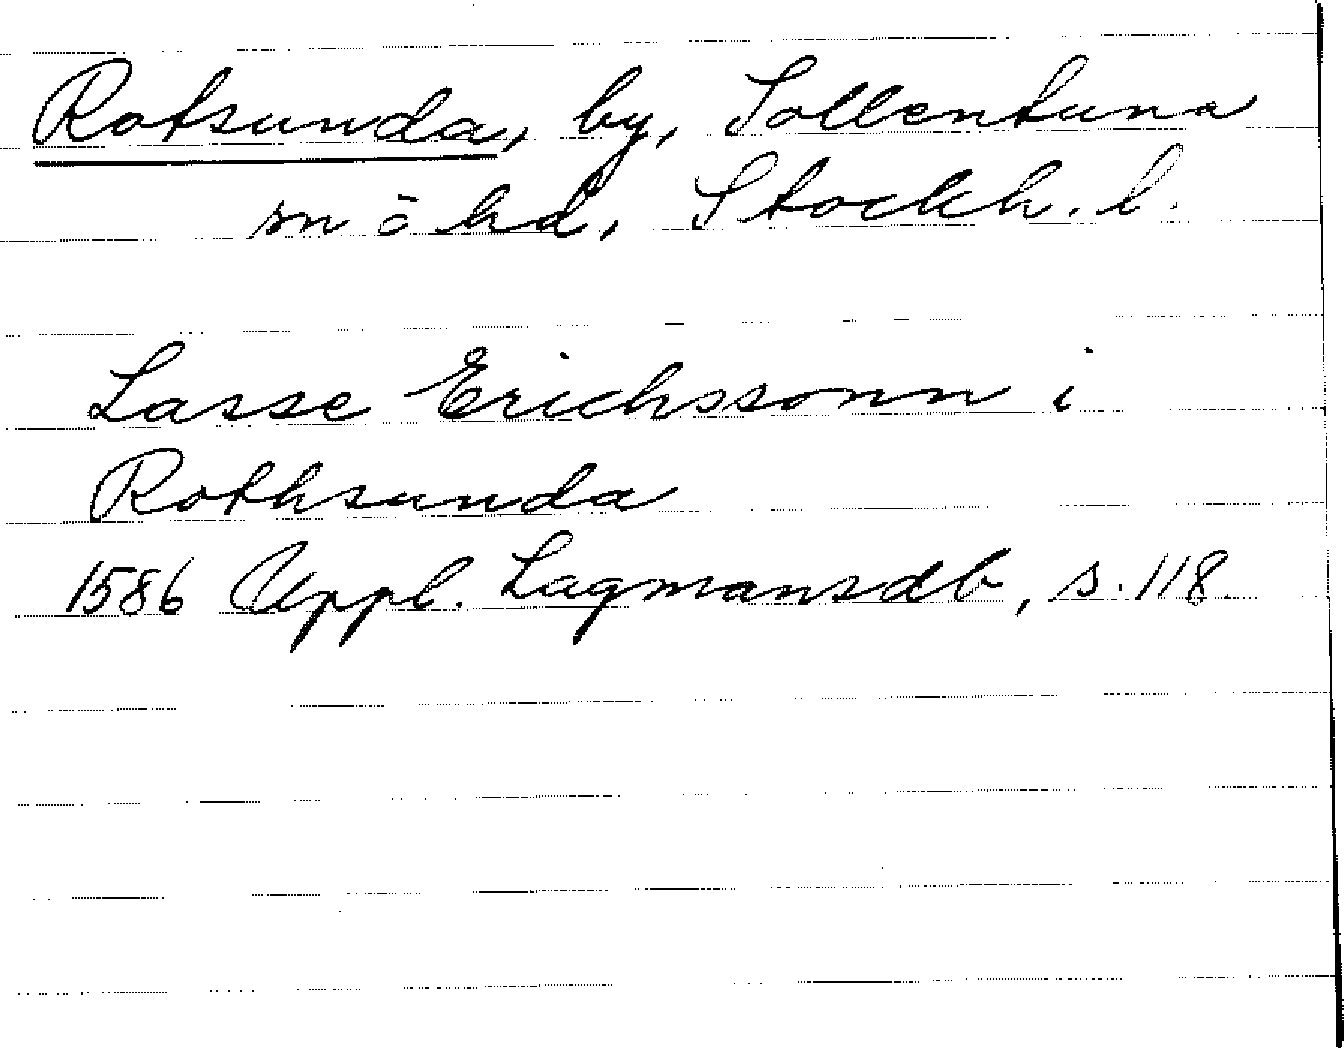 Rotsunda, by, Sollentuna
sn ō hd, Stockh. l.
Lasse Erichssonn i
Rothsunda
1586 Uppl. Lagmansdb, s. 118